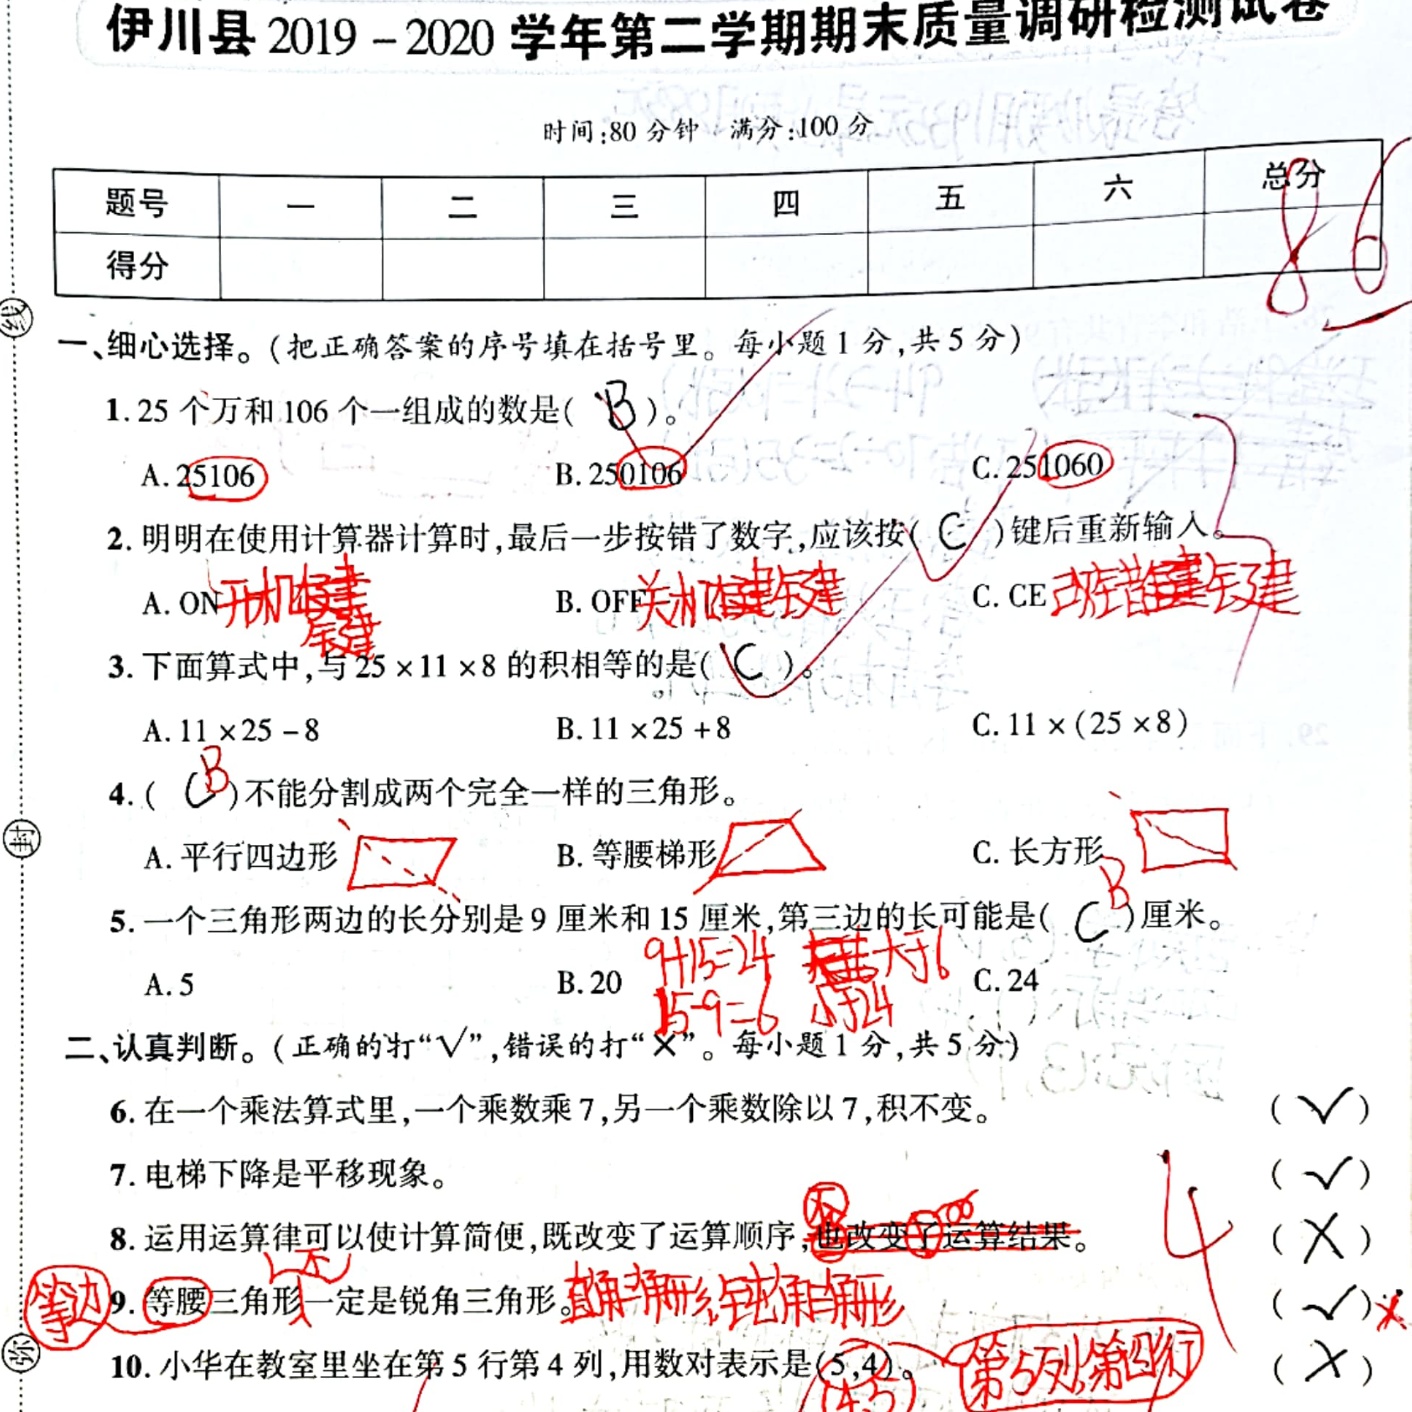 伊川县 2019－2020 学年第二学期期末质量调研检测试卷
时间:80 分钟 满分:100 分
题号 一 二 三 四 五 六 总分
得分
86
一、细心选择。(把正确答案的序号填在括号里。每小题 1 分,共 5 分)
1. 25 个万和 106 个一组成的数是( B )。
A. 25106 B. 250106 C. 251060
2. 明明在使用计算器计算时,最后一步按错了数字,应该按( C )键后重新输入。
A. ON 开机键 B. OFF 关机键 C. CE
3. 下面算式中,与 25×11×8 的积相等的是( C )。
A. 11×25－8 B. 11×25＋8 C. 11×(25×8)
3
4. ( C B )不能分割成两个完全一样的三角形。
A. 平行四边形 B. 等腰梯形 C. 长方形
5. 一个三角形两边的长分别是 9 厘米和 15 厘米,第三边的长可能是( C B )厘米。
9+15=24 大于6
A. 5 B. 20 C. 24
15-9=6 小于24
二、认真判断。(正确的打“√”,错误的打“×”。每小题 1 分,共 5 分)
6. 在一个乘法算式里,一个乘数乘 7,另一个乘数除以 7,积不变。 ( √ )
7. 电梯下降是平移现象。 ( √ )
4
不
8. 运用运算律可以使计算简便,既改变了运算顺序,也改变了运算结果。 ( × )
不
等边 9. 等腰三角形一定是锐角三角形。直角三角形,钝角三角形 ( √ ) ×
10. 小华在教室里坐在第 5 行第 4 列,用数对表示是(5,4)。 第5列,第四行 ( × )
(4,5)
线
封
弥